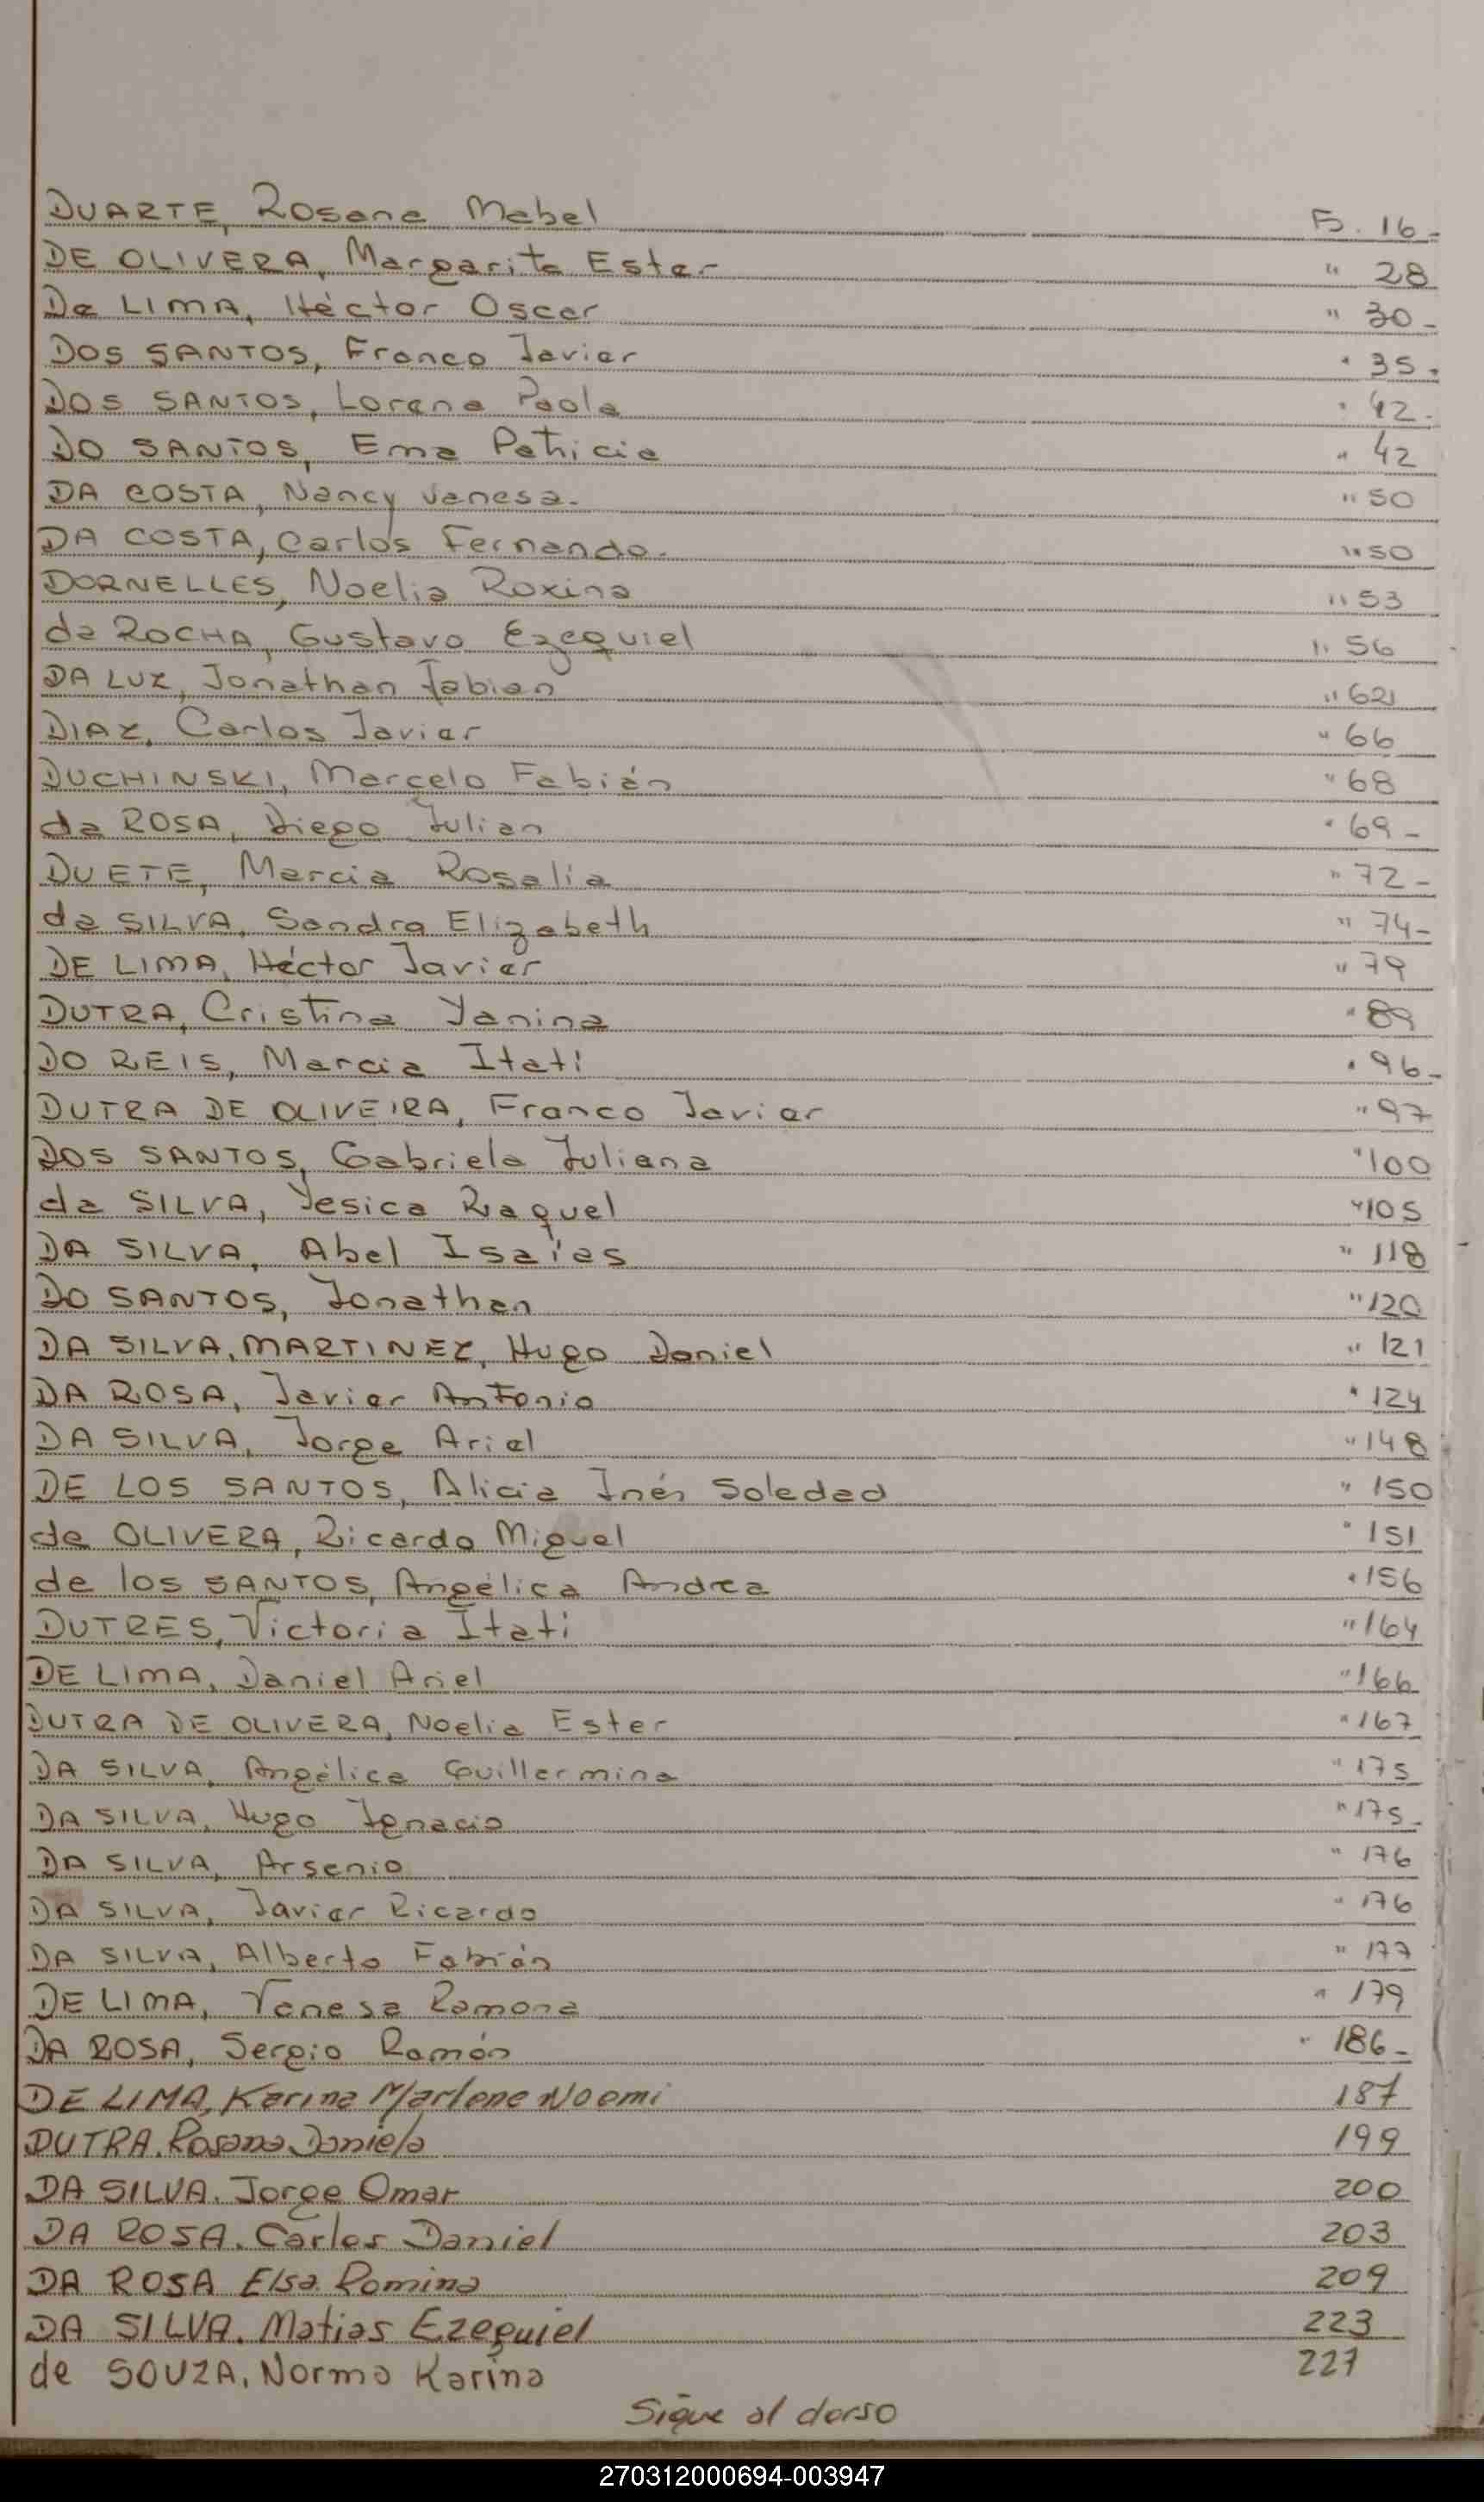 DUARTE, Rosana Mabel F. 16-
DE OLIVERA, Margarita Ester " 28
De LIMA, Héctor Oscar " 30-
DOS SANTOS, Franco Javier " 35.
DOS SANTOS, Lorena Paola " 42.
DO SANTOS, Ema Patricia " 42
DA COSTA, Nancy Vanesa. " 50
DA COSTA, Carlos Fernando. " 50
DORNELLES, Noelia Roxina " 53
da ROCHA, Gustavo Ezequiel " 56
DA LUZ, Jonathan Fabian " 62
DIAZ, Carlos Javier " 66
DUCHINSKI, Marcelo Fabián " 68
da ROSA, Diego Julian " 69-
DUETE, Marcia Rosalia " 72-
da SILVA, Sandra Elizabeth " 74-
DE LIMA, Héctor Javier " 79
DUTRA, Cristina Yanina " 89
DO REIS, Marcia Itatí " 96-
DUTRA DE OLIVEIRA, Franco Javier " 97
DOS SANTOS, Gabriela Juliana " 100
da SILVA, Yesica Raquel " 105
DA SILVA, Abel Isaías " 118
DO SANTOS, Jonathan " 120
DA SILVA, MARTINEZ, Hugo Daniel " 121
DA ROSA, Javier Antonio " 124
DA SILVA, Jorge Ariel " 148
DE LOS SANTOS, Alicia Inés Soledad " 150
de OLIVERA, Ricardo Miguel " 151
de los SANTOS, Angélica Andrea " 156
DUTRES, Victoria Itatí " 164
DE LIMA, Daniel Ariel " 166
DUTRA DE OLIVERA, Noelia Ester " 167
DA SILVA, Angélica Guillermina " 175
DA SILVA, Hugo Ignacio " 175-
DA SILVA, Arsenio " 176
DA SILVA, Javier Ricardo " 176
DA SILVA, Alberto Fabián " 177
DE LIMA, Vanesa Ramona " 179
DA ROSA, Sergio Ramón " 186-
DE LIMA, Karina Marlene Noemi 187
DUTRA. Rosana Daniela 199
DA SILVA. Jorge Omar 200
DA ROSA. Carlos Daniel 203
DA ROSA Elsa Romina 209
DA SILVA. Matias Ezequiel 223
de SOUZA, Norma Karina 227
Sigue al dorso
270312000694-003947